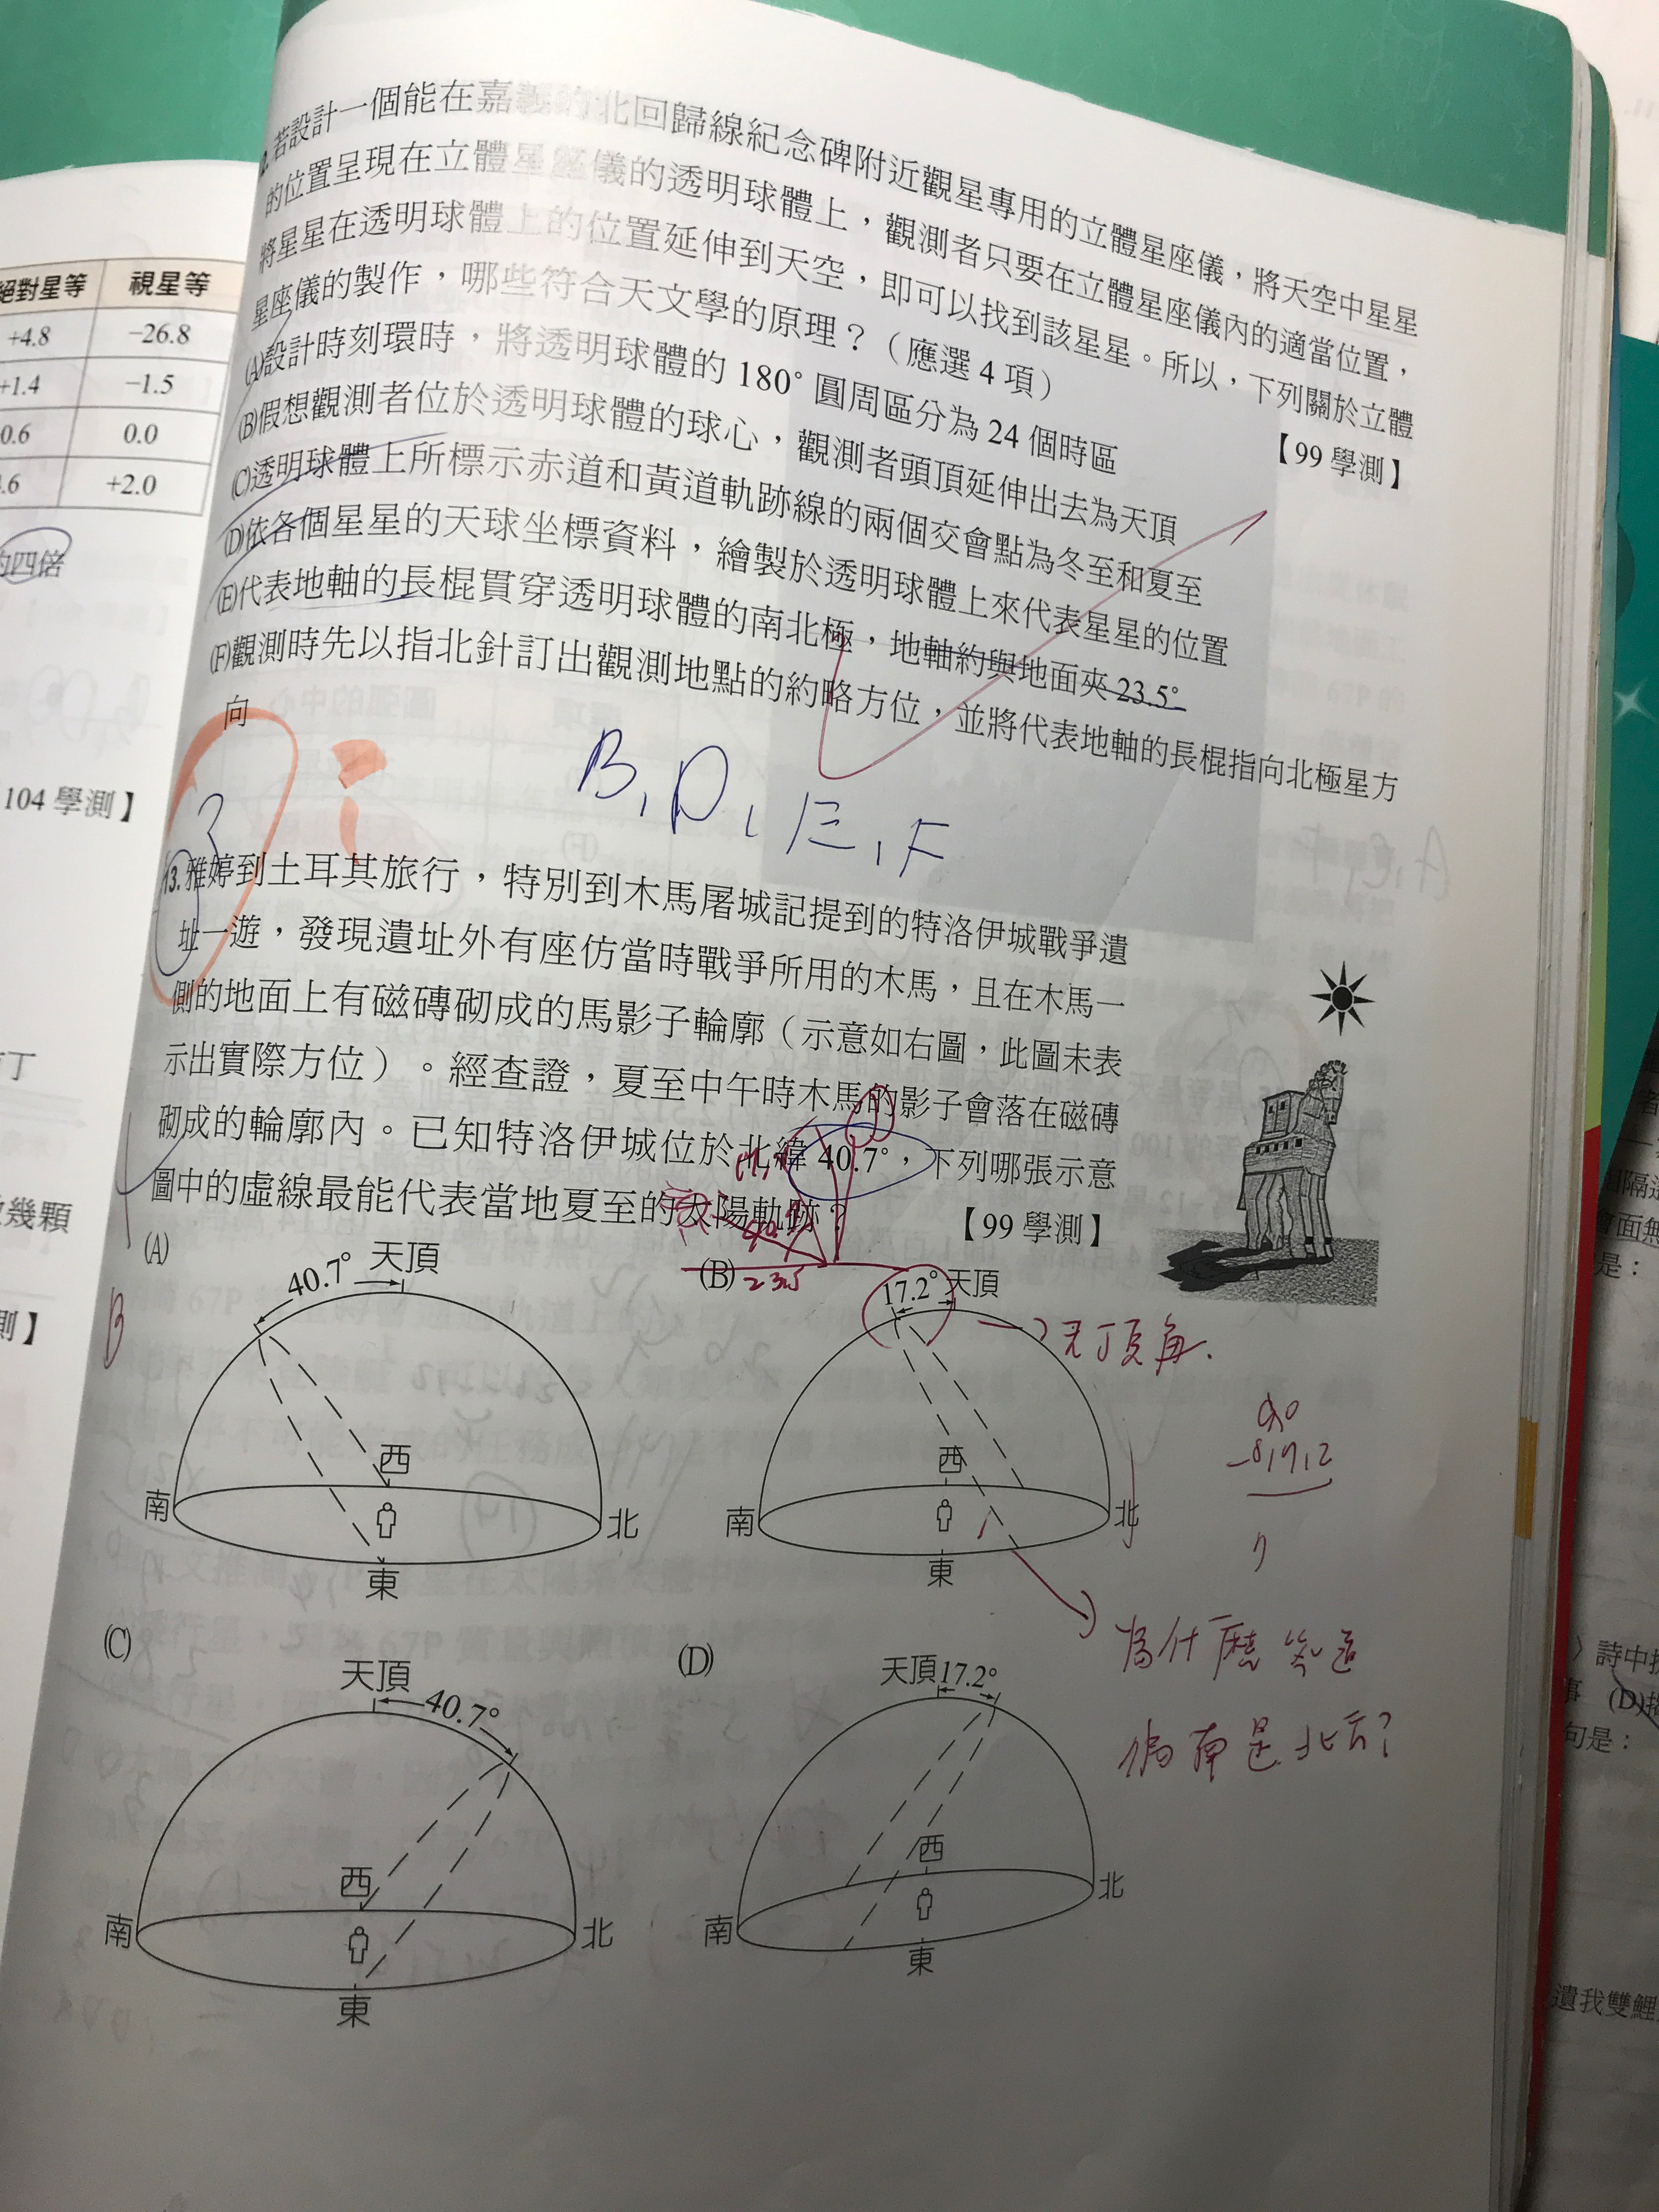 絕對星等 視星等
+4.8 −26.8
+1.4 −1.5
0.6 0.0
.6 +2.0
的四倍
104 學測】
幾顆
測】
2.若設計一個能在嘉義的北回歸線紀念碑附近觀星專用的立體星座儀，將天空中星星
的位置呈現在立體星座儀的透明球體上，觀測者只要在立體星座儀內的適當位置，
將星星在透明球體上的位置延伸到天空，即可以找到該星星。所以，下列關於立體
星座儀的製作，哪些符合天文學的原理？（應選 4 項） 【99 學測】
(A)設計時刻環時，將透明球體的 180° 圓周區分為 24 個時區
(B)假想觀測者位於透明球體的球心，觀測者頭頂延伸出去為天頂
(C)透明球體上所標示赤道和黃道軌跡線的兩個交會點為冬至和夏至
(D)依各個星星的天球坐標資料，繪製於透明球體上來代表星星的位置
(E)代表地軸的長棍貫穿透明球體的南北極，地軸約與地面夾 23.5°
(F)觀測時先以指北針訂出觀測地點的約略方位，並將代表地軸的長棍指向北極星方
向
B, D, E, F
13.雅婷到土耳其旅行，特別到木馬屠城記提到的特洛伊城戰爭遺
址一遊，發現遺址外有座仿當時戰爭所用的木馬，且在木馬一
側的地面上有磁磚砌成的馬影子輪廓（示意如右圖，此圖未表
示出實際方位）。經查證，夏至中午時木馬的影子會落在磁磚
砌成的輪廓內。已知特洛伊城位於北緯 40.7°，下列哪張示意
圖中的虛線最能代表當地夏至的太陽軌跡？ 【99 學測】
B
23.5
(A)
40.7° 天頂
西
南 北
東
(B)
17.2° 天頂
→天頂角.
西
南 北
東
90
為什麼知道
偏南是北方?
(C)
天頂
40.7°
西
南 北
東
(D)
天頂 17.2°
西
南 北
東
詩中
句是：
遺我雙鯉